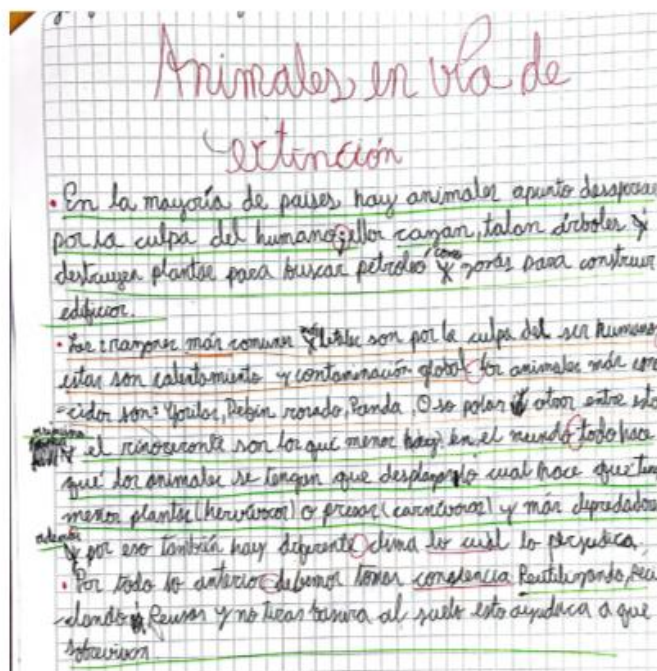 Animales en vía de
extinción
• En la mayoría de paises hay animales apunto desaparecer
por la culpa del humano, ellos cazan, talan árboles y
destruyen plantas para buscar petroleo como zonas para construir
edificios.
• Las razones más comunes son por la culpa del ser humano
estas son calentamiento y contaminación global los animales más cono
-cidos son: Gorilas, Delfin rosado, Panda, Oso polar otros entre esto
el rinoceronte son los que menos hay en el mundo todo hace
que los animales se tengan que desplazar lo cual hace que
menos plantas (hervívoros) o presas (carnívoros) y más depredadore
además
por eso también hay diferente clima lo cual lo perjudica.
• Por todo lo anterior debemos tomar consiencia Reutilizando, reci
-clando Reusar y no tirar basura al suelo esto ayudaca a que
sobrevivan.